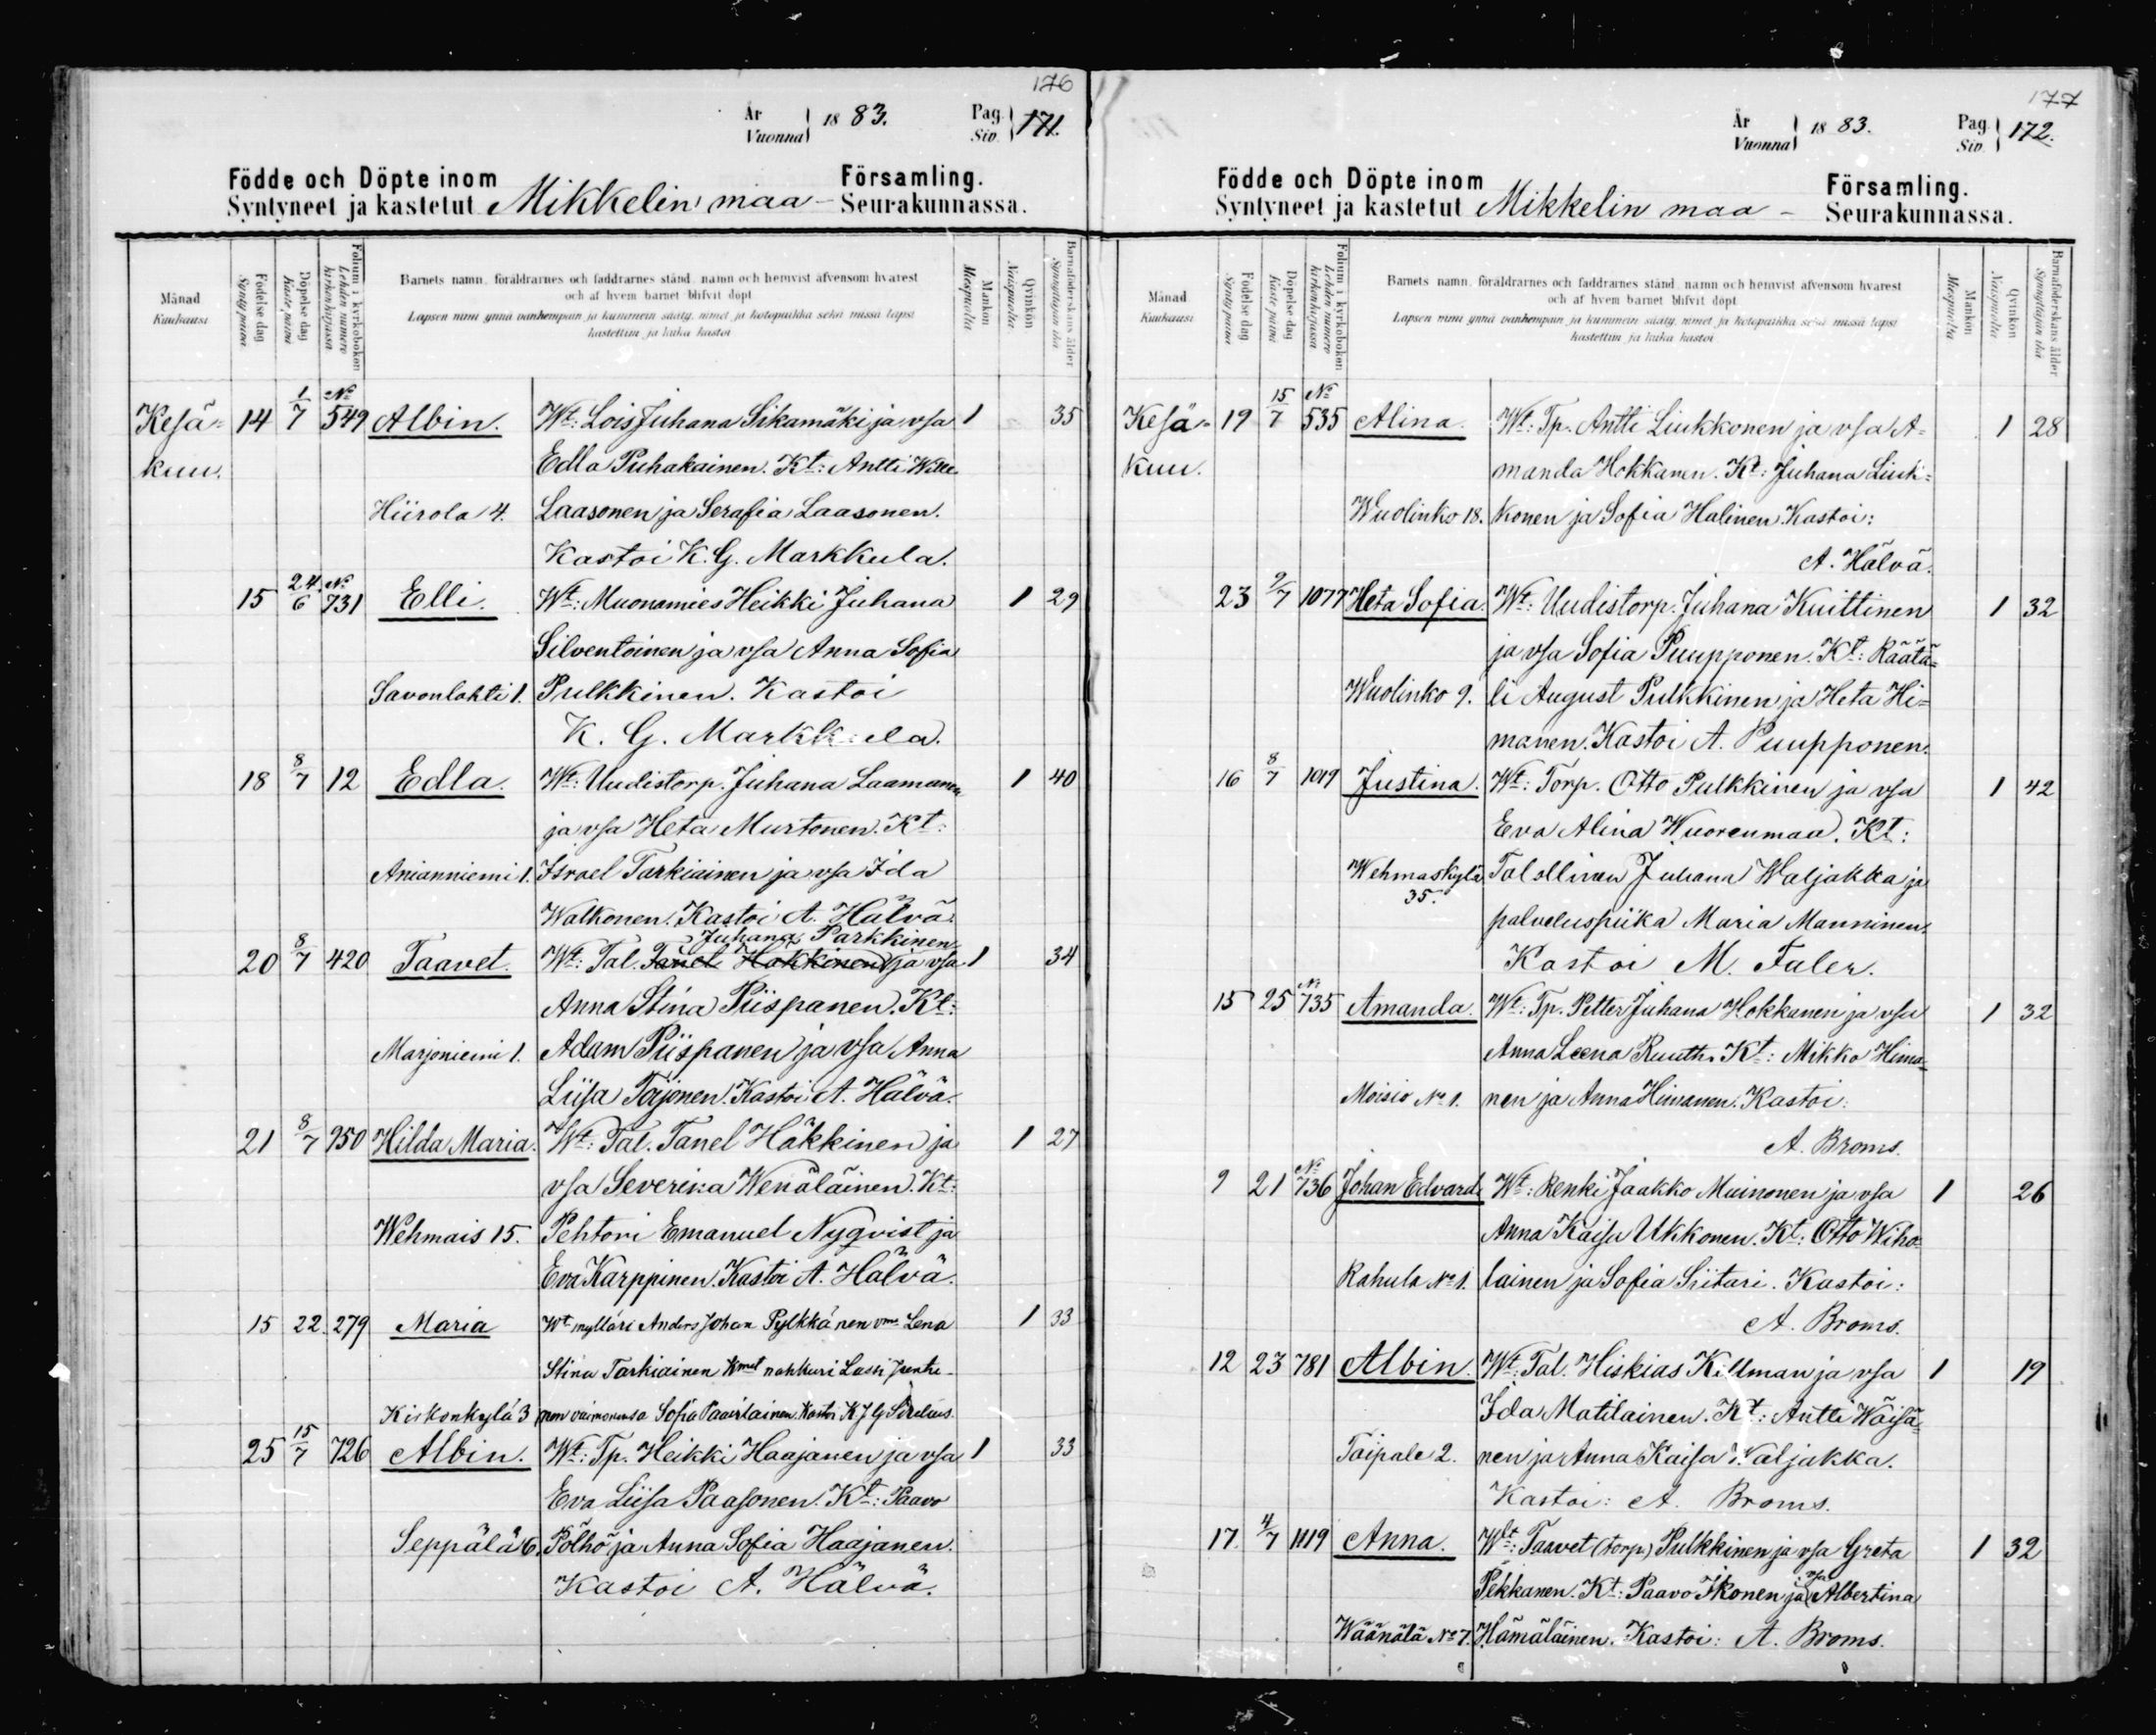 176
År
Vuonna 18 83.
Pag.
Siv. 171.
Födde och Döpte inom Församling.
Syntyneet ja kastetut Mikkelin maa- Seurakunnassa.
Månad
Kuukausi
Födelse dag
Syntypäivä
Döpelse dag
Kastepäivä
Folium i kyrkoboken
Lehden numero kirkonkirjassa
Barnets namn, föräldrarnes och faddrarnes stånd, namn och hemvist äfvensom hvarest
och af hvem barnet blifvit döpt
Lapsen nimi ynnä vanhempain ja kummein sääty, nimet ja kotopaikka sekä missä lapsi
kastettiin ja kuka kastoi
Mankön
Miespuolia
Qvinkön
Naispuolia
Barnaföderskans ålder
Synnyttäjän ikä
Kesä- 14 1/7 No 549 Albin. Wt: Lois Juhana Sikamäki ja vsa 1 35
kuu. Edla Puhakainen. Kt: Antti Wille
Hiirola 4. Laasonen ja Serafia Laasonen.
Kastoi K. G. Markkula.
15 24/6 No 731 Elli. Wt: Muonamies Heikki Juhana 1 29
Silventoinen ja vsa Anna Sofia
Savonlahti 1. Pulkkinen. Kastoi
K. G. Markkula.
18 8/7 12 Edla. Wt: Uudistorp. Juhana Laamanen 1 40
ja vsa Heta Murtonen. Kt:
Anianniemi 1. Israel Tarkiainen ja vsa Ida
Walkonen. Kastoi A. Hälvä.
Juhana Parkkinen
20 8/7 420 Taavet. Wt: Tal. Taneli Häkkinen ja vsa 1 34
Anna Stina Piispanen. Kt:
Marjoniemi 1. Adam Piispanen ja vsa Anna
Liisa Toijonen. Kastoi A. Hälvä.
21 8/7 950 Hilda Maria. Wt: Tal. Tanel Häkkinen ja 1 27
vsa Severika Wenäläinen. Kt:
Wehmais 15. Pehtori Emanuel Nyqvist ja
Eva Karppinen. Kastoi A. Hälvä.
15 22. 279 Maria Wt mylläri Anders Johan Pylkkänen vmo Lena 1 33
Stina Tarkiainen Kmat nahkuri Lassi
Kirkonkylä 3 nen vaimonensa Sofia Kastoi K J G Sirelius.
25 15/7 726 Albin. Wt: Tp. Heikki Haajanen ja vsa 1 33
Eva Liisa Paasonen. Kt: Paavo
Seppälä 6. Pölhö ja Anna Sofia Haajanen.
Kastoi A. Hälvä.
177
År
Vuonna 18 83.
Pag.
Siv. 172.
Födde och Döpte inom Församling.
Syntyneet ja kastetut Mikkelin maa- Seurakunnassa.
Månad
Kuukausi
Födelse dag
Syntypäivä
Döpelse dag
Kastepäivä
Folium i kyrkoboken
Lehden numero kirkonkirjassa
Barnets namn, föräldrarnes och faddrarnes stånd, namn och hemvist äfvensom hvarest
och af hvem barnet blifvit döpt
Lapsen nimi ynnä vanhempain ja kummein sääty, nimet ja kotopaikka sekä missä lapsi
kastettiin ja kuka kastoi
Mankön
Miespuolia
Qvinkön
Naispuolia
Barnaföderskans ålder
Synnyttäjän ikä
Kesä- 19 15/7 No 535 Alina. Wt: Tp. Antti Liukkonen ja vsa A- 1 28
kuu. manda Hokkanen. Kt: Juhana Liuk-
Wuolinko 18. konen ja Sofia Halinen. Kastoi:
A. Hälvä.
23 9/7 1077 Heta Sofia. Wt: Uudistorp. Juhana Kuittinen 1 32
ja vsa Sofia Puupponen. Kt: Räätä-
Wuolinko 9. li August Pulkkinen ja Heta Hi-
manen. Kastoi A. Puupponen.
16 8/7 1019 Justina. Wt: Torp. Otto Pulkkinen ja vsa 1 42
Eva Alina Wuorenmaa. Kt:
Wehmaskylä Talollinen Juhana Waljakka ja
35. palveluspiika Maria Manninen.
Kastoi M. Faler.
15 25 No 735 Amanda. Wt: Tp. Petter Juhana Hokkanen ja vsa 1 32
Anna Leena Ruuth. Kt: Mikko Hima-
Moisio No 1. nen ja Anna Himanen. Kastoi:
A. Broms.
9 21 No 736 Johan Edvard. Wt: Renki Jaakko Muinonen ja vsa 1 26
Anna Kaisa Ukkonen. Kt: Otto Wiho-
Rahula No 1. lainen ja Sofia Siitari. Kastoi:
A. Broms.
12 23 781 Albin. Wt: Tal. Hiskias Killman ja vsa 1 19
Ida Matilainen. Kt: Antti Wäisä-
Taipale 2. nen ja Anna Kaisa Waljakka.
Kastoi: A. Broms.
17. 4/7 1119 Anna. Wt: Taavet (torp) Pulkkinen ja vsa Greta 1 32
Pekkanen. Kt: Paavo Ikonen ja vsa Albertina
Wäänälä No 7. Hämäläinen. Kastoi: A. Broms.